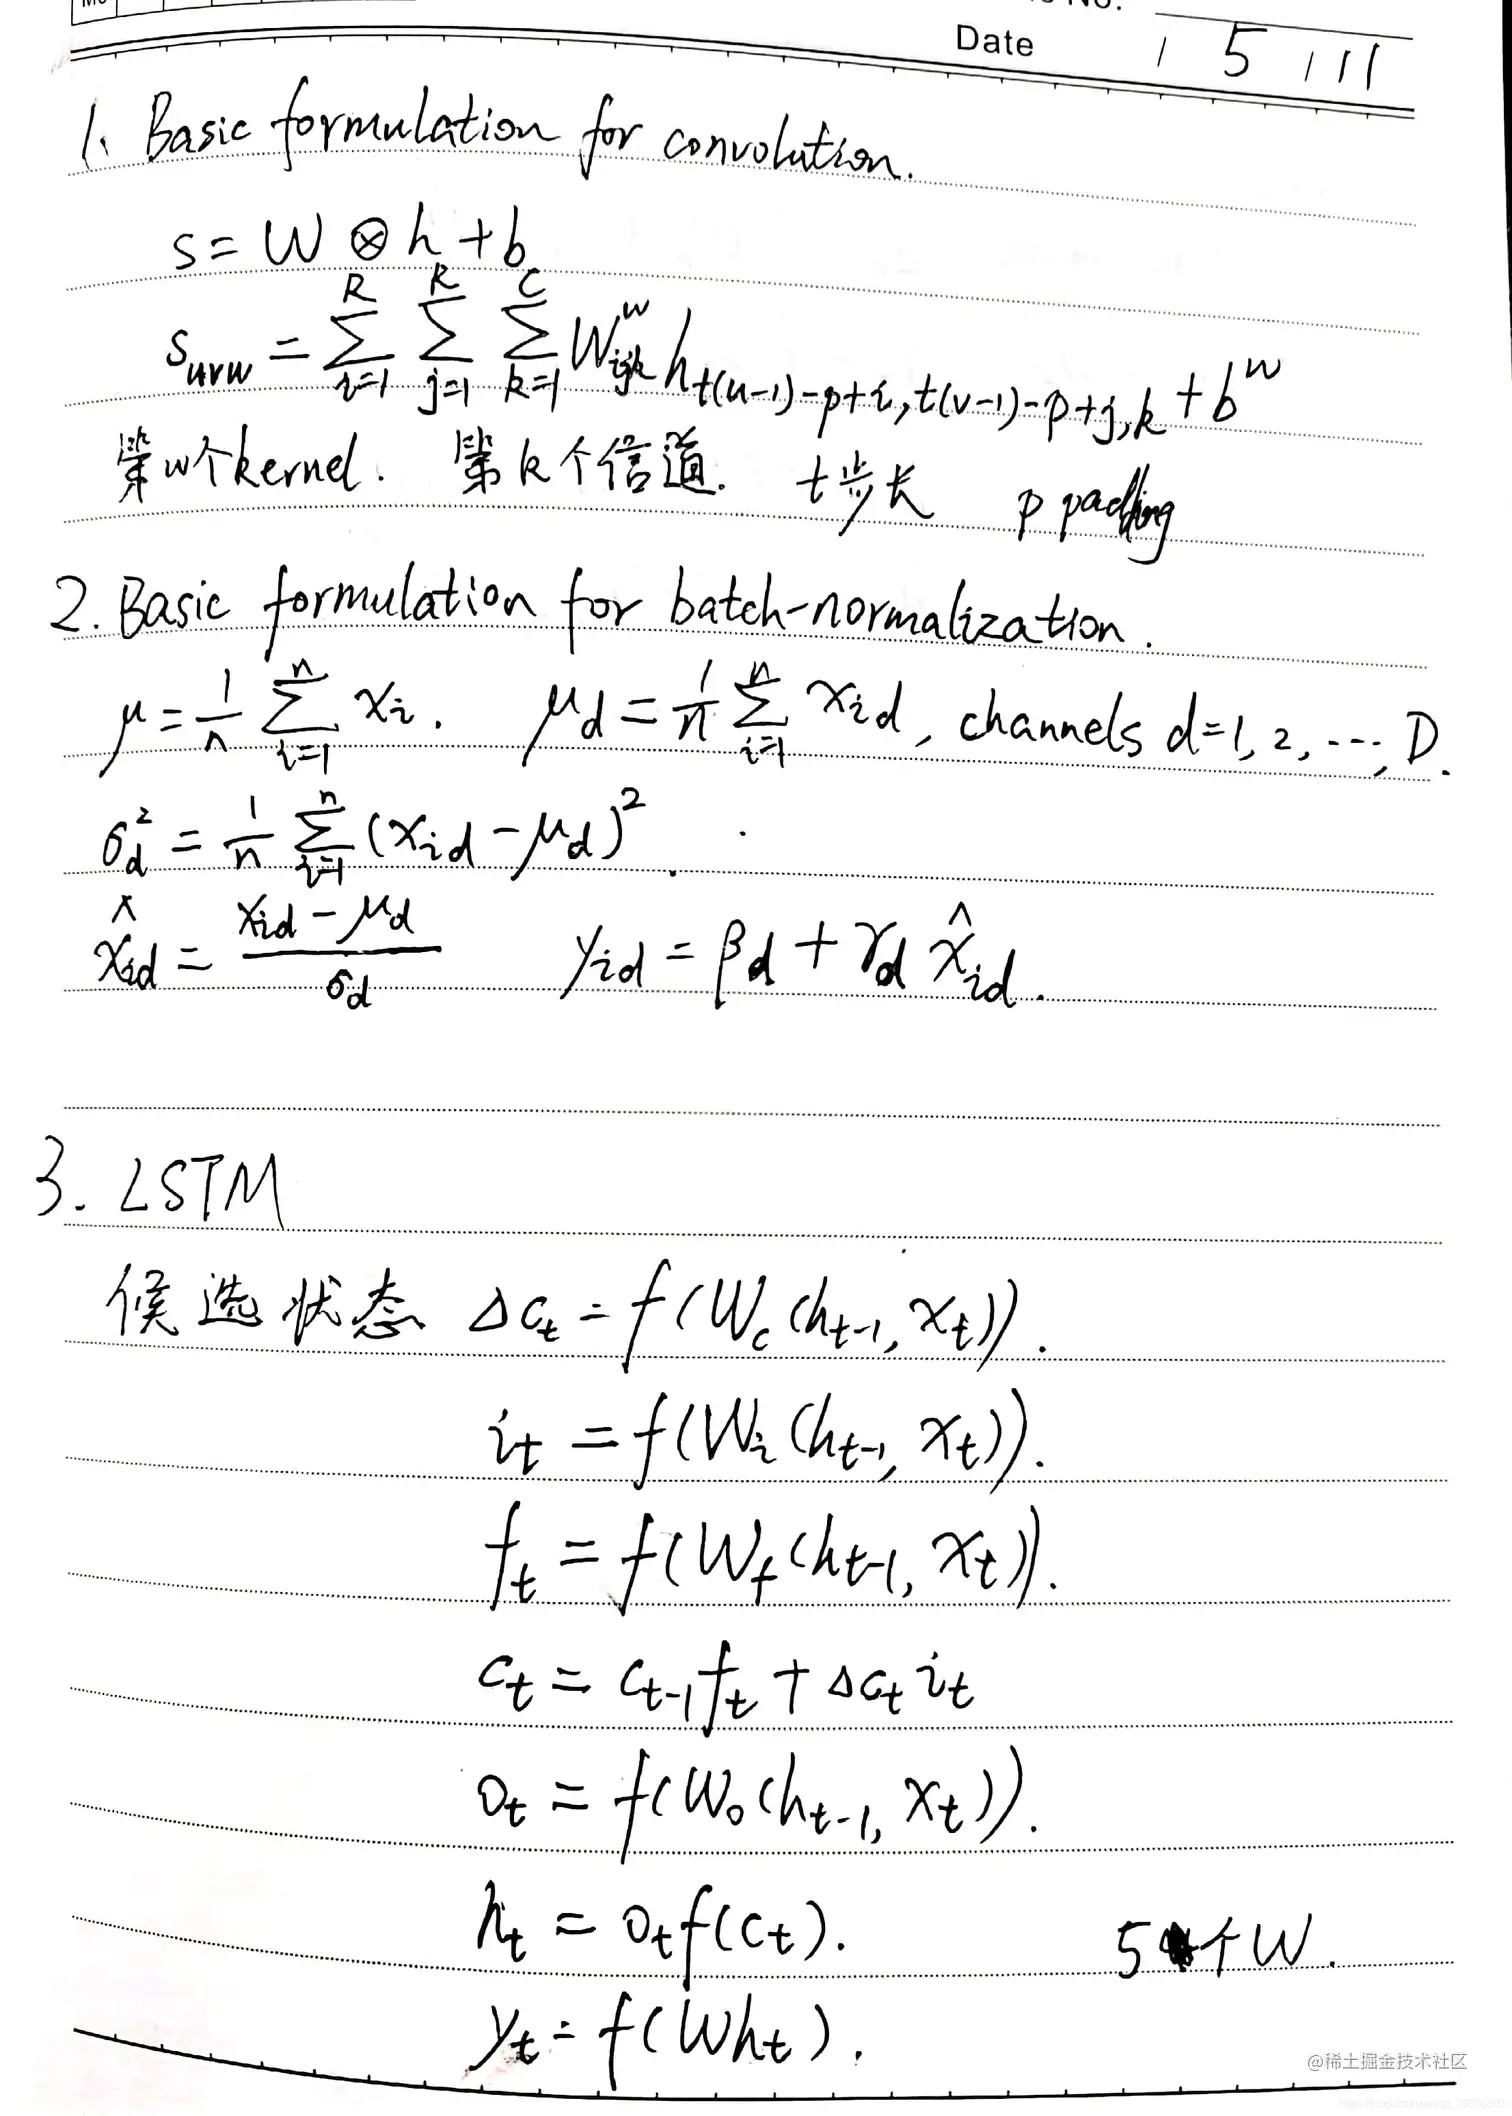 Date / 5 / 11
1. Basic formulation for convolution.
s = W ⊗ h + b
s_{uvw} = \sum_{i=1}^{R} \sum_{j=1}^{R} \sum_{k=1}^{C} W_{ijk}^{w} h_{t(u-1)-p+i, t(v-1)-p+j, k} + b^{w}
第w个kernel. 第k个信道. t步长 p padding
2. Basic formulation for batch-normalization.
μ = \frac{1}{n} \sum_{i=1}^{n} x_i. μ_d = \frac{1}{n} \sum_{i=1}^{n} x_{id}, channels d=1, 2, ⋯, D.
σ_d^2 = \frac{1}{n} \sum_{i=1}^{n} (x_{id} - μ_d)^2.
\hat{x}_{id} = \frac{x_{id} - μ_d}{σ_d} y_{id} = β_d + γ_d \hat{x}_{id}.
3. LSTM
候选状态 Δc_t = f(W_c(h_{t-1}, x_t)).
i_t = f(W_i(h_{t-1}, x_t)).
f_t = f(W_f(h_{t-1}, x_t)).
c_t = c_{t-1} f_t + Δc_t i_t
o_t = f(W_o(h_{t-1}, x_t)).
h_t = o_t f(c_t). 5个W.
y_t = f(Wh_t).
@稀土掘金技术社区